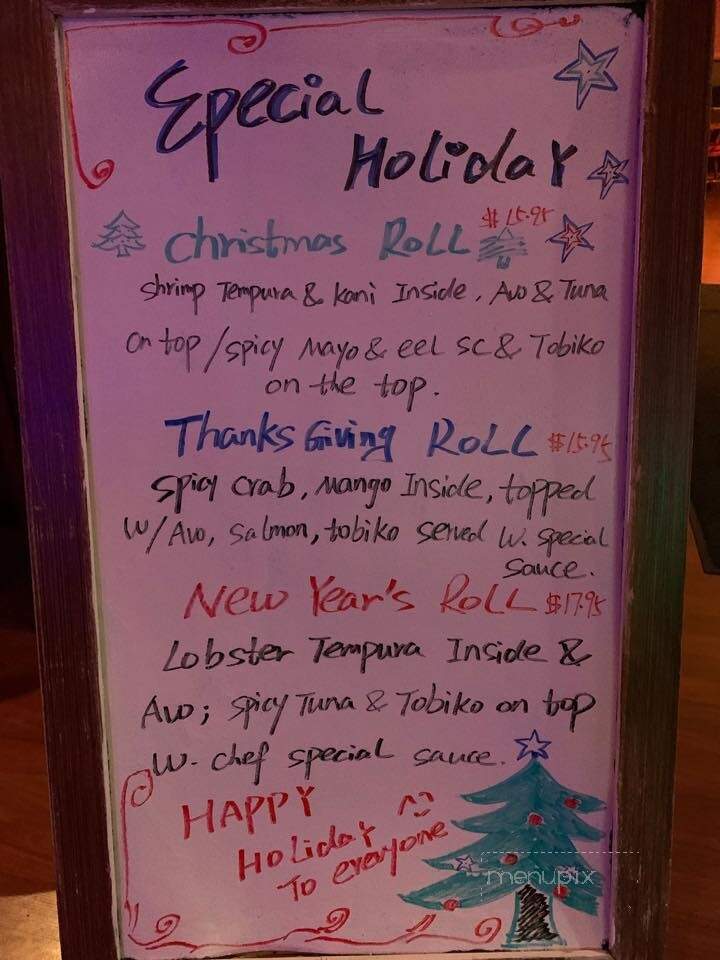 Special
Holiday
Christmas Roll $15.95
shrimp Tempura & kani Inside, Avo & Tuna
on top / spicy Mayo & eel sc & Tobiko
on the top.
Thanks Giving Roll $15.95
spicy crab, Mango Inside, topped
w/ Avo, salmon, tobiko served w. special
sauce.
New Year's Roll $17.95
Lobster Tempura Inside &
Avo; spicy Tuna & Tobiko on top
w. chef special sauce.
HAPPY
Holiday
To everyone
menupix